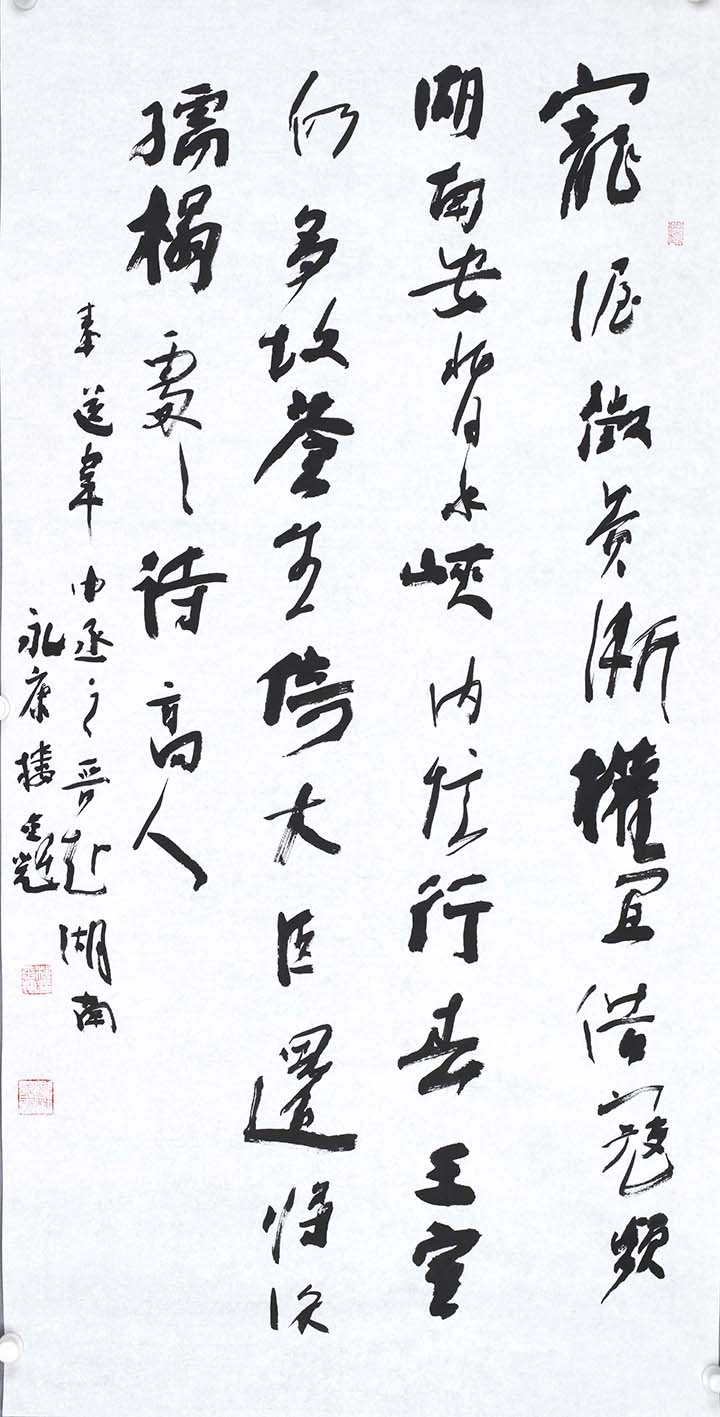 寵渥徵黃漸權宜借寇頻
湖南安背水峽内憶行春王室
仍多故蒼生倚大臣還將徐
孺榻處々待高人
奉送韋中丞之晉赴湖南
永康樓